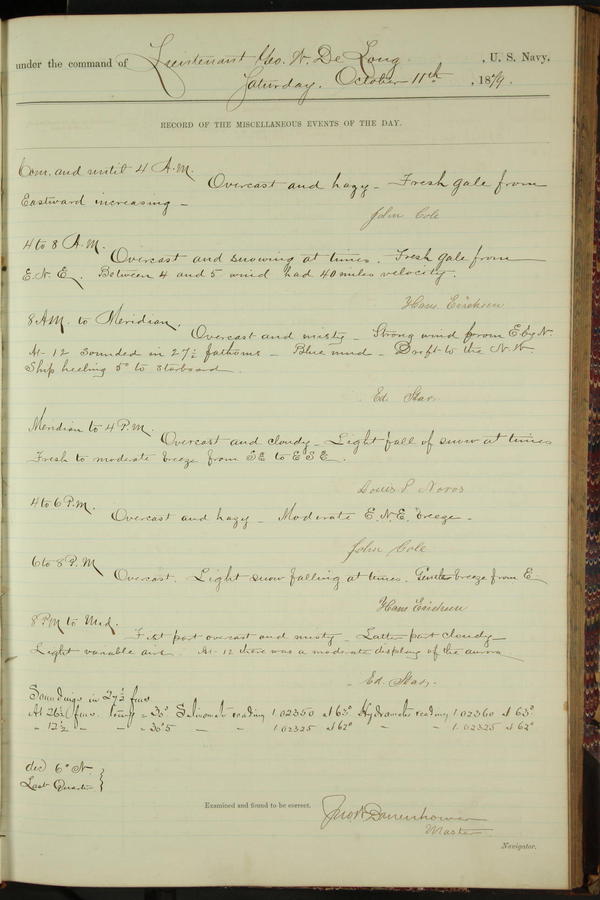 under the command of Lieutenant Geo. W. De Long, U. S. Navy,
Saturday, October 11th, 1879.
RECORD OF THE MISCELLANEOUS EVENTS OF THE DAY.
Com. and until 4 A.M.
Overcast and hazy - Fresh gale from
Eastward increasing -
John Cole
4 to 8 A.M.
Overcast and snowing at times. Fresh gale from
E.N.E. Between 4 and 5 wind had 40 miles velocity.
Hans Erichsen
8 AM. to Meridian.
Overcast and misty - Strong wind from E by N.
At 12 sounded in 27½ fathoms - Blue mud - Drift to the N.W.
Ship heeling 5° to starboard.
Ed. Star.
Meridian to 4 P.M.
Overcast and cloudy - Light fall of snow at times
Fresh to moderate breeze from SE to ESE.
Louis P Noros
4 to 6 P.M.
Overcast and hazy - Moderate E.N.E. breeze -
John Cole
6 to 8 P.M
Overcast. Light snow falling at times. Gentle breeze from E
Hans Erichsen
8 PM to Mid.
First part overcast and misty - Latter part cloudy
Light variable airs. At 12 there was a moderate display of the aurora
Ed. Star.
Soundings in 27½ fms
At 26½ fms. temp = 30° Salinometer reading 1.02350 at 63° Hydrometer reading 1.02360 at 63°
" 12½ " " = 30°5 " " 1.02325 at 62° " " 1.02325 at 62°
dec 6° N.
Last Quarter
Examined and found to be correct.
Jno W Danenhower
Master
Navigator.